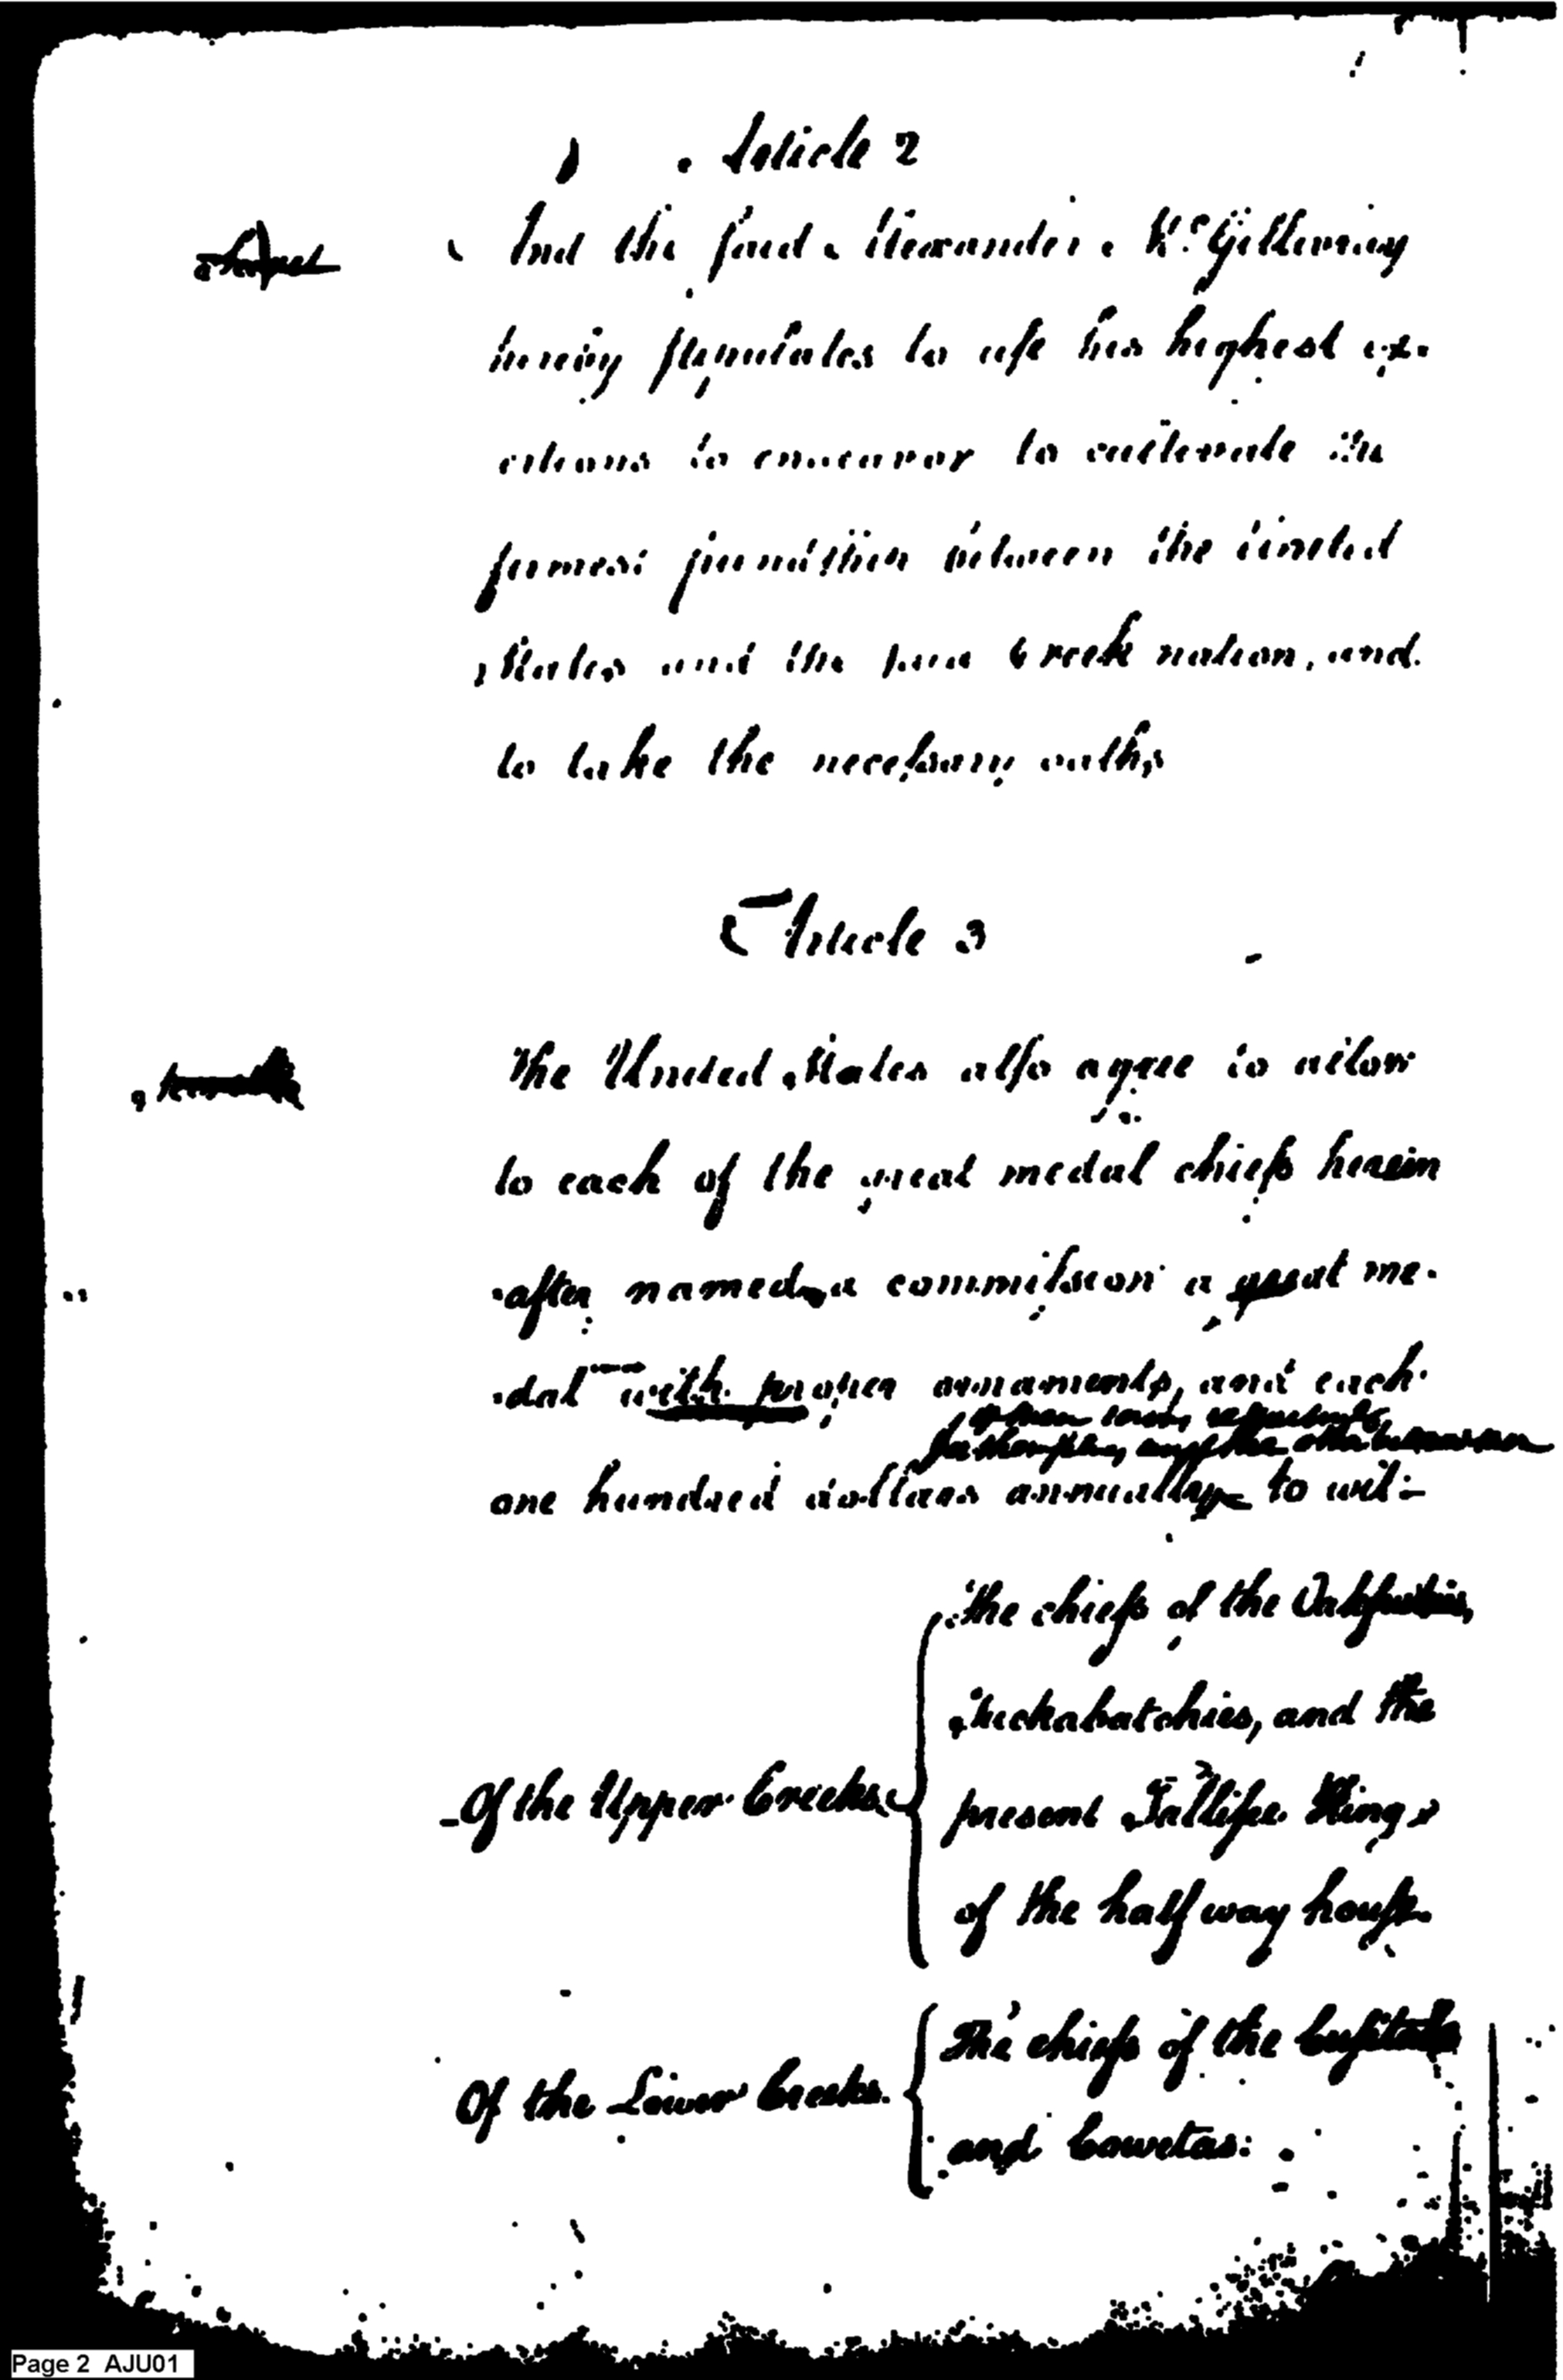 Article 2
And the said Alexander McGillivray
hereby stipulates to use his highest ex-
ertions to endeavor to cultivate the
firmest friendship between the United
States and the said Creek nation, and
to take the necessary oaths
Article 3
The United States also agree to allow
to each of the great medal chiefs herein
after named, a commission a great me-
dal with proper ornaments, and each
one hundred dollars annually to wit:-
The chiefs of the
Tuckabatchies, and the
Of the Upper Creeks.
present Tallisee King
of the half way house.
The chiefs of the
Of the Lower Creeks.
and Cowetas:
Page 2 AJU01